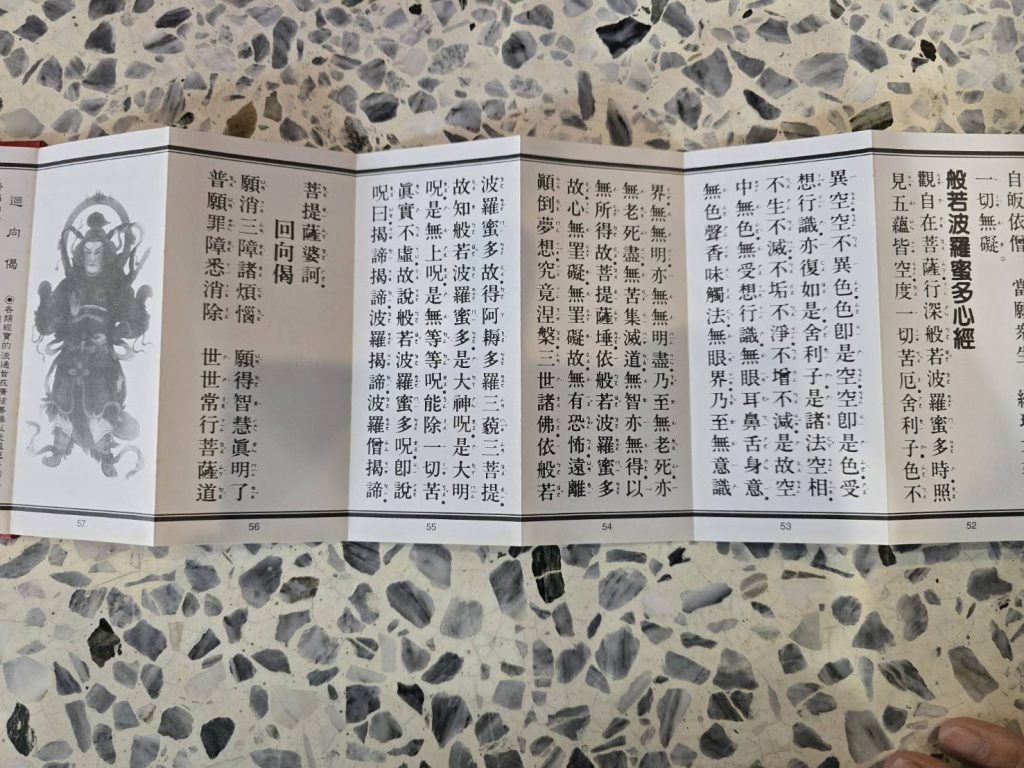 自皈依僧 當願眾生
一切無礙。
般若波羅蜜多心經
觀自在菩薩行深般若波羅蜜多時照
見五蘊皆空度一切苦厄舍利子色不
52
異空空不異色色卽是空空卽是色受
想行識亦復如是舍利子是諸法空相
不生不滅不垢不淨不增不減是故空
中無色無受想行識無眼耳鼻舌身意
無色聲香味觸法無眼界乃至無意識
53
界無無明亦無無明盡乃至無老死亦
無老死盡無苦集滅道無智亦無得以
無所得故菩提薩埵依般若波羅蜜多
故心無罣礙無罣礙故無有恐怖遠離
顚倒夢想究竟涅槃三世諸佛依般若
54
波羅蜜多故得阿耨多羅三藐三菩提
故知般若波羅蜜多是大神呪是大明
呪是無上呪是無等等呪能除一切苦
眞實不虛故說般若波羅蜜多呪卽說
呪曰揭諦揭諦波羅揭諦波羅僧揭諦
55
菩提薩婆訶
回向偈
願消三障諸煩惱 願得智慧眞明了
普願罪障悉消除 世世常行菩薩道
56
57
迴向偈